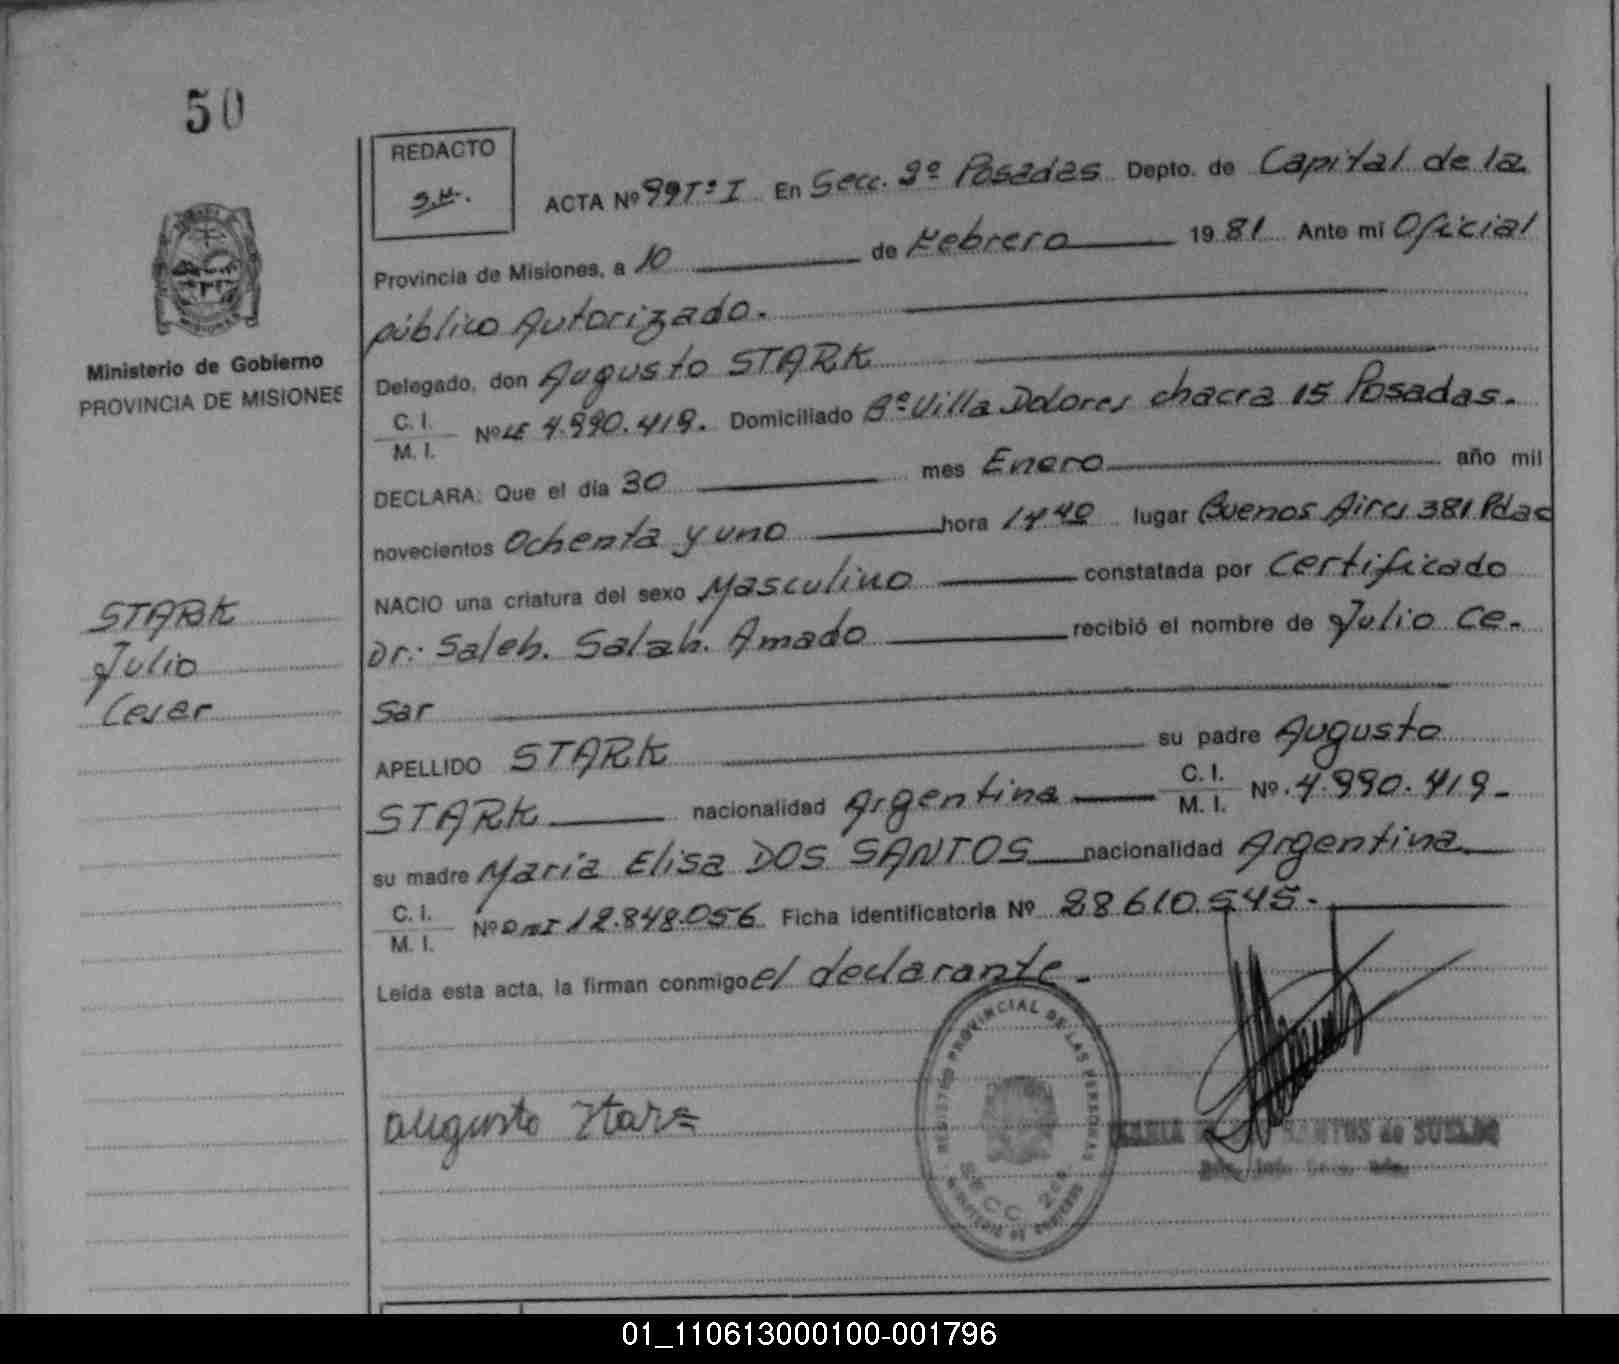 50
REDACTO
ACTA Nº 99 Tº I En Secc. 2º Posadas Depto. de Capital de la
Provincia de Misiones, a 10 de Febrero 1981 Ante mi Oficial
público Autorizado.
Delegado, don Augusto STARK
C. I.
M. I. Nº LE 4.990.419. Domiciliado Bº Villa Dolores chacra 15 Posadas.
DECLARA: Que el día 30 mes Enero año mil
novecientos Ochenta y uno hora 14.40 lugar Buenos Aires 381 Pdas
NACIO una criatura del sexo Masculino constatada por Certificado
Dr.: Saleh. Salah. Amado recibió el nombre de Julio Ce-
sar
APELLIDO STARK su padre Augusto
STARK nacionalidad Argentina C. I.
M. I. Nº. 4.990.419-
su madre María Elisa DOS SANTOS nacionalidad Argentina
C. I.
M. I. Nº DNI 12.848.056 Ficha identificatoria Nº 28610.545-
Leída esta acta, la firman conmigo el declarante-
Augusto Stark
Ministerio de Gobierno
PROVINCIA DE MISIONES
STARK
Julio
Cesar
REGISTRO PROVINCIAL DE LAS PERSONAS
SECC. 2da
MARIA SANTOS de SUELDO
01_110613000100-001796